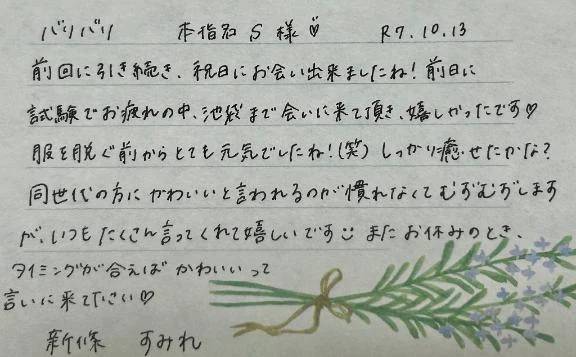 バリバリ 本指名 S 様♡ R7.10.13
前回に引き続き、祝日にお会い出来ましたね!前日に
試験でお疲れの中、池袋まで会いに来て頂き、嬉しかったです♡
服を脱ぐ前からとても元気でしたね!(笑)しっかり癒せたかな?
同世代の方にかわいいと言われるのが慣れなくてむずむずします
が、いつもたくさん言ってくれて嬉しいです☺またお休みのとき、
タイミングが合えばかわいいって
言いに来て下さい♡
新條 すみれ